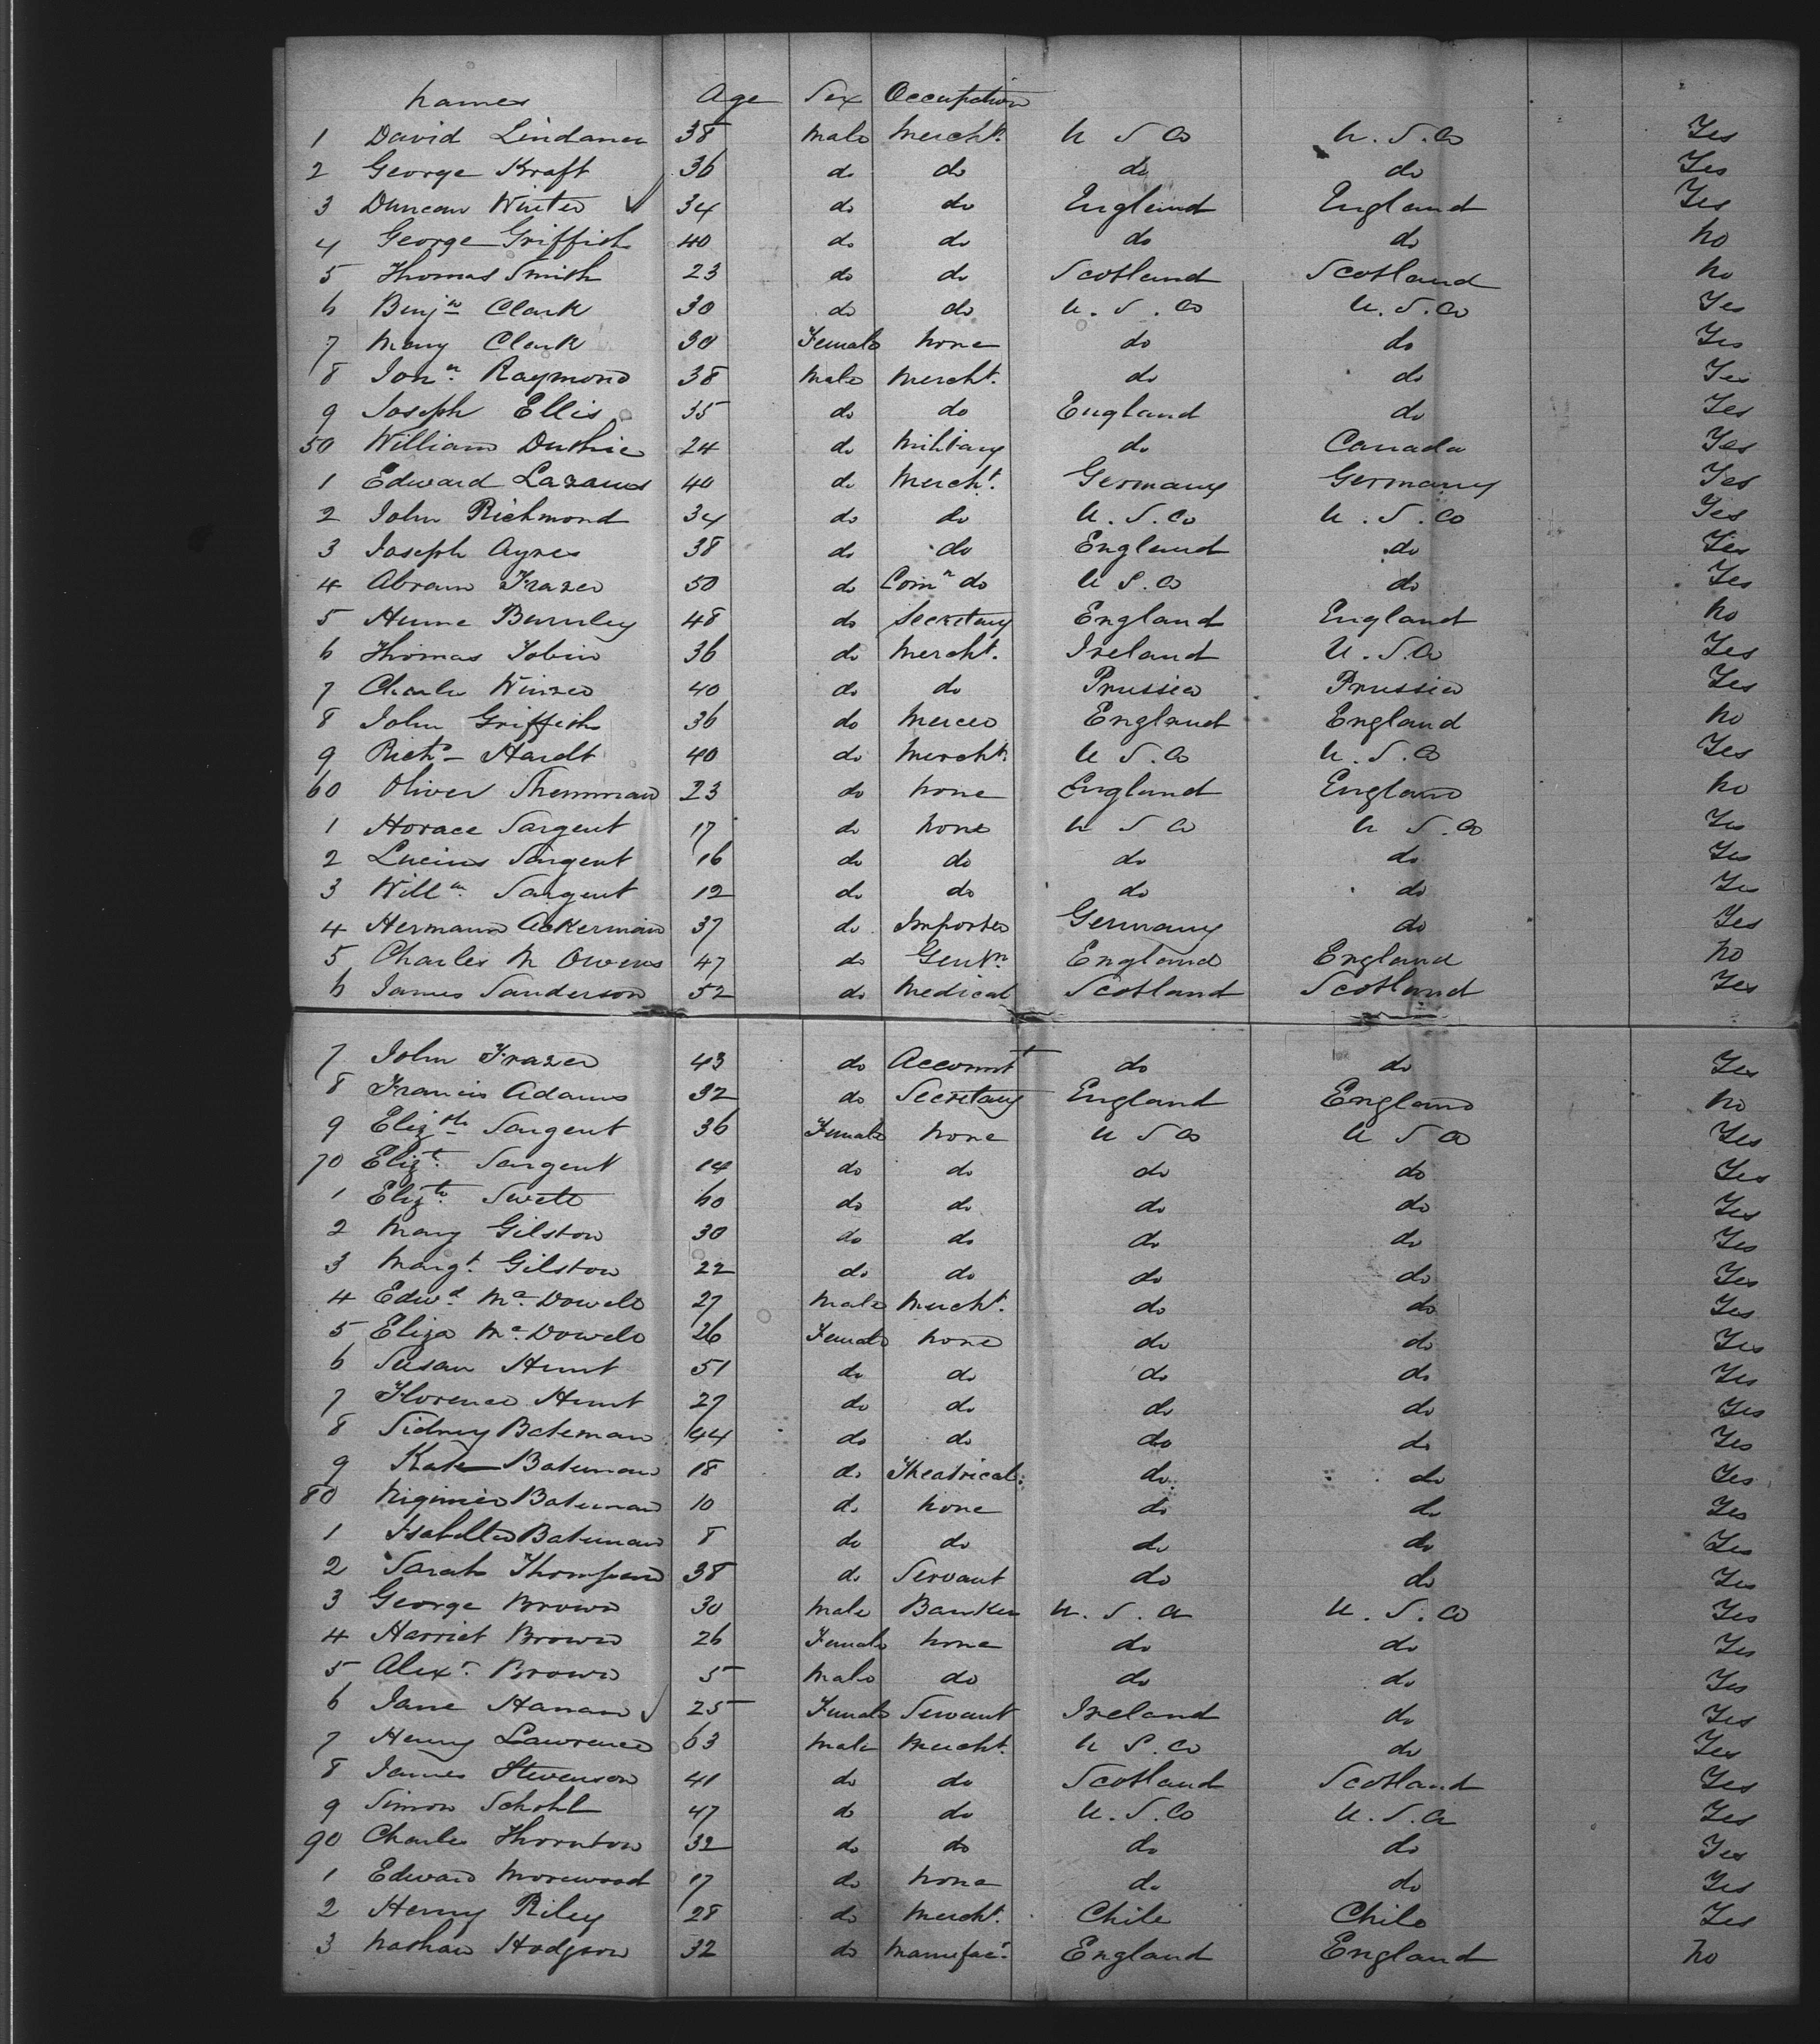 Names Age Sex Occupation
1 David Lindauer 38 Male Mercht. U S A U.S.A Yes
2 George Kraft 36 do do do do Yes
3 Duncan Winter ✓ 34 do do England England Yes
4 George Griffith 40 do do do do No
5 Thomas Smith 23 do do Scotland Scotland No
6 Benjn Clark 30 do do U.S.A U.S.A Yes
7 Mary Clark 30 Female None do do Yes
8 Jonn. Raymond 38 Male Mercht. do do Yes
9 Joseph Ellis 35 do do England do Yes
50 William Duthie 24 do Military do Canada Yes
1 Edward Lazarus 40 do Mercht. Germany Germany Yes
2 John Richmond 34 do do U.S.A U.S.A Yes
3 Joseph Ayres 38 do do England do Yes
4 Abram Frazer 50 do Comn do U S.A do Yes
5 Hume Burnley 48 do Secretary England England No
6 Thomas Tobin 36 do Mercht. Ireland U.S.A Yes
7 Charles Winzer 40 do do Prussia Prussia Yes
8 John Griffith 36 do Mercer England England No
9 Richd Hardt 40 do Mercht. U S.A U.S.A Yes
60 Oliver 23 do None England England No
1 Horace Sargent 17 do None U S A U S.A Yes
2 Lucius Sargent 16 do do do do Yes
3 Willm. Sargent 12 do do do do Yes
4 Hermann Ackerman 37 do Importer Germany do Yes
5 Charles M Owens 47 do Gentn. England England No
6 James Sanderson 52 do Medical Scotland Scotland Yes
7 John Frazer 43 do Accountt do do Yes
8 Francis Adams 32 do Secretary England England No
9 Elizth Sargent 36 Female None U S A U S A Yes
70 Elizt. Sargent 14 do do do do Yes
1 Elizth Swett 60 do do do do Yes
2 Mary Gilston 30 do do do do Yes
3 Margt. Gilston 22 do do do do Yes
4 Edwd. McDowell 27 Male Mercht. do do Yes
5 Eliza McDowell 26 Female None do do Yes
6 Susan Hunt 51 do do do do Yes
7 Florence Hunt 27 do do do do Yes
8 Sidney Bateman 44 do do do do Yes
9 Kate Bateman 18 do Theatrical do do Yes
80 Bateman 10 do None do do Yes
1 Isabella Bateman 8 do do do do Yes
2 Sarah Thompson 38 do Servant do do Yes
3 George Brown 30 Male Banker U.S.A U.S.A Yes
4 Harriet Brown 26 Female None do do Yes
5 Alexr. Brown 5 Male do do do Yes
6 Jane Hanan ✓ 25 Female Servant Ireland do Yes
7 Henry Lawrence 63 Male Mercht. U S.A do Yes
8 James Stevenson 41 do do Scotland Scotland Yes
9 Simon Schohl 47 do do U.S.A U.S.A Yes
90 Charles Thornton 32 do do do do Yes
1 Edward Morewood 17 do None do do Yes
2 Henry Riley 28 do Mercht. Chile Chile Yes
3 Nathan Hodgson 32 do Manufacr. England England No